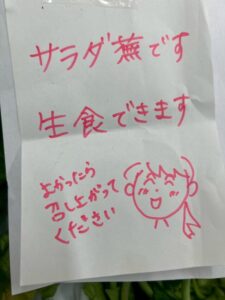 サラダ蕪です
生食できます
よかったら
召し上がって
ください